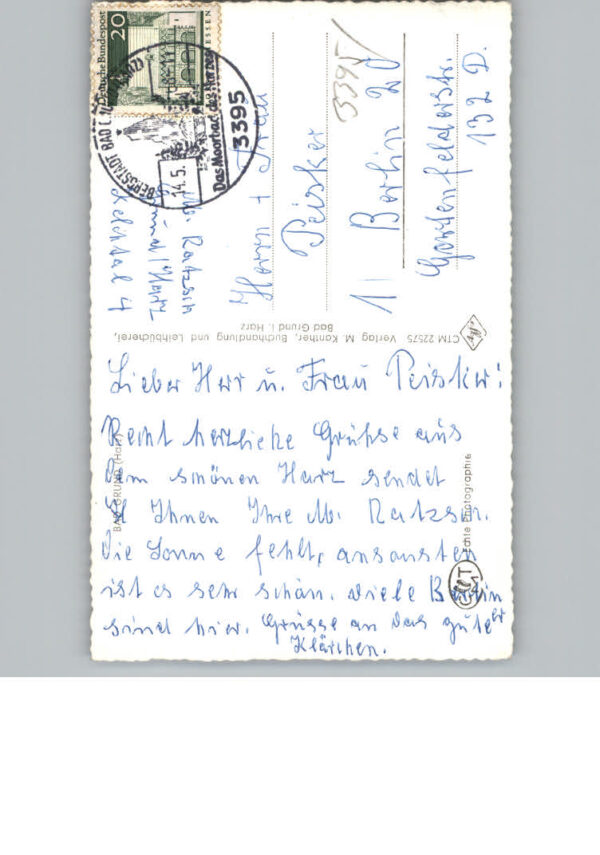 Deutsche Bundespost
20
HESSEN
BERGSTADT BAD
Das Moorbad des Harzes
14.5.
3395
M. Ratzsch
4
3395
Herrn + Frau
Peisker
1 Berlin 20
Gartenfelderstr.
132 D.
CTM 22575 Verlag M. Konther, Buchhandlung und Leihbücherei,
Bad Grund i. Harz
BAD GRUND (Harz)
Echte Photographie
Lieber Herr u. Frau Peisker!
Recht herzliche Grühse aus
dem schönen Harz sendet
Ihnen Ihre M. Ratzsch.
Die Sonne fehlt, ansonsten
ist es sehr schön. Viele Berlin
er
sind hier. Grüsse an das gute
Klärchen.